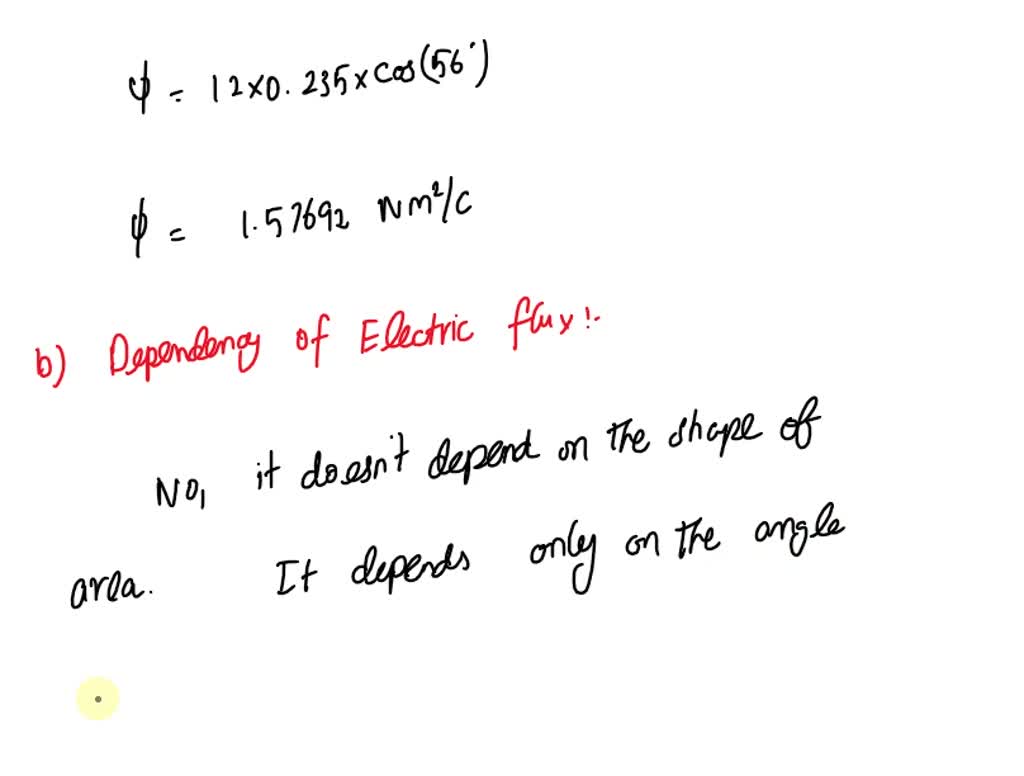 ψ = 12×0.235×cos(56°)
ψ = 1.57692 Nm²/C
b) Dependency of Electric flux:-
No, it doesn't depend on the shape of
area. It depends only on the angle